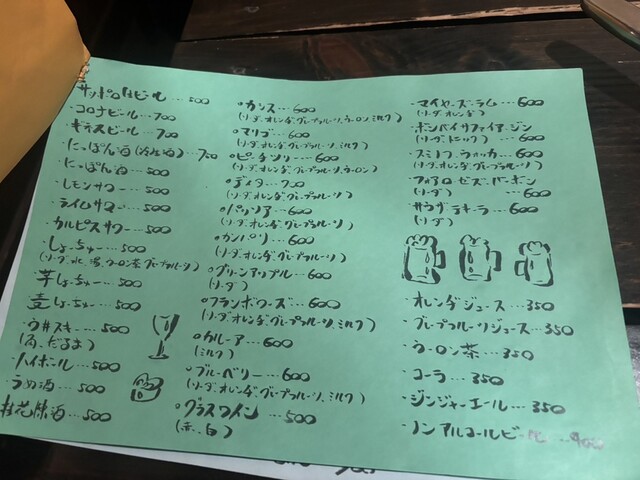 サッポロ生ビール…500
・コロナビール…700
・キラスビール…700
・にっぽん酒(冷酒)…700
・にっぽん酒…500
・レモンサワー…500
・ライムサワー…500
・カルピスサワー…500
・しょーちゅー…500
(ソーダ、水、湯、ウーロン茶、グレープフルーツ)
・芋しょーちゅー…500
・麦しょーちゅー…500
・ウ井スキー…500
・ハイボール…500
・うめ酒…500
桂花陳酒…500
○カシス…600
(ソーダ、オレンジ、グレープフルーツ、ウーロン、ミルク)
○マリブ…600
(ソーダ、オレンジ、グレープフルーツ、ミルク)
○ピーチツリー…600
(ソーダ、オレンジ、グレープフルーツ、ウーロン)
○ディタ…700
(ソーダ、オレンジ、グレープフルーツ)
○パッソア…600
(ソーダ、オレンジ、グレープフルーツ)
○カンパリ…600
(ソーダ、オレンジ、グレープフルーツ)
○グリーンアップル…600
(ソーダ)
○フランボワーズ…600
(ソーダ、オレンジ、グレープフルーツ、ミルク)
○カルーア…600
(ミルク)
○ブルーベリー…600
(ソーダ、オレンジ、グレープフルーツ、ミルク)
○グラスワイン…500
(赤、白)
・マイヤーズラム…600
(ソーダ、オレンジ)
・ボンベイサファイアージン
(ソーダ、トニック)…600
・スミノフウォッカ…600
(ソーダ、オレンジ、グレープフルーツ)
・フォアローゼズ・バーボン
(ソーダ)…600
・サウザテキーラ…600
(ソーダ)
・オレンジジュース…350
・グレープフルーツジュース…350
・ウーロン茶…350
・コーラ…350
・ジンジャーエール…350
・ノンアルコールビール…400